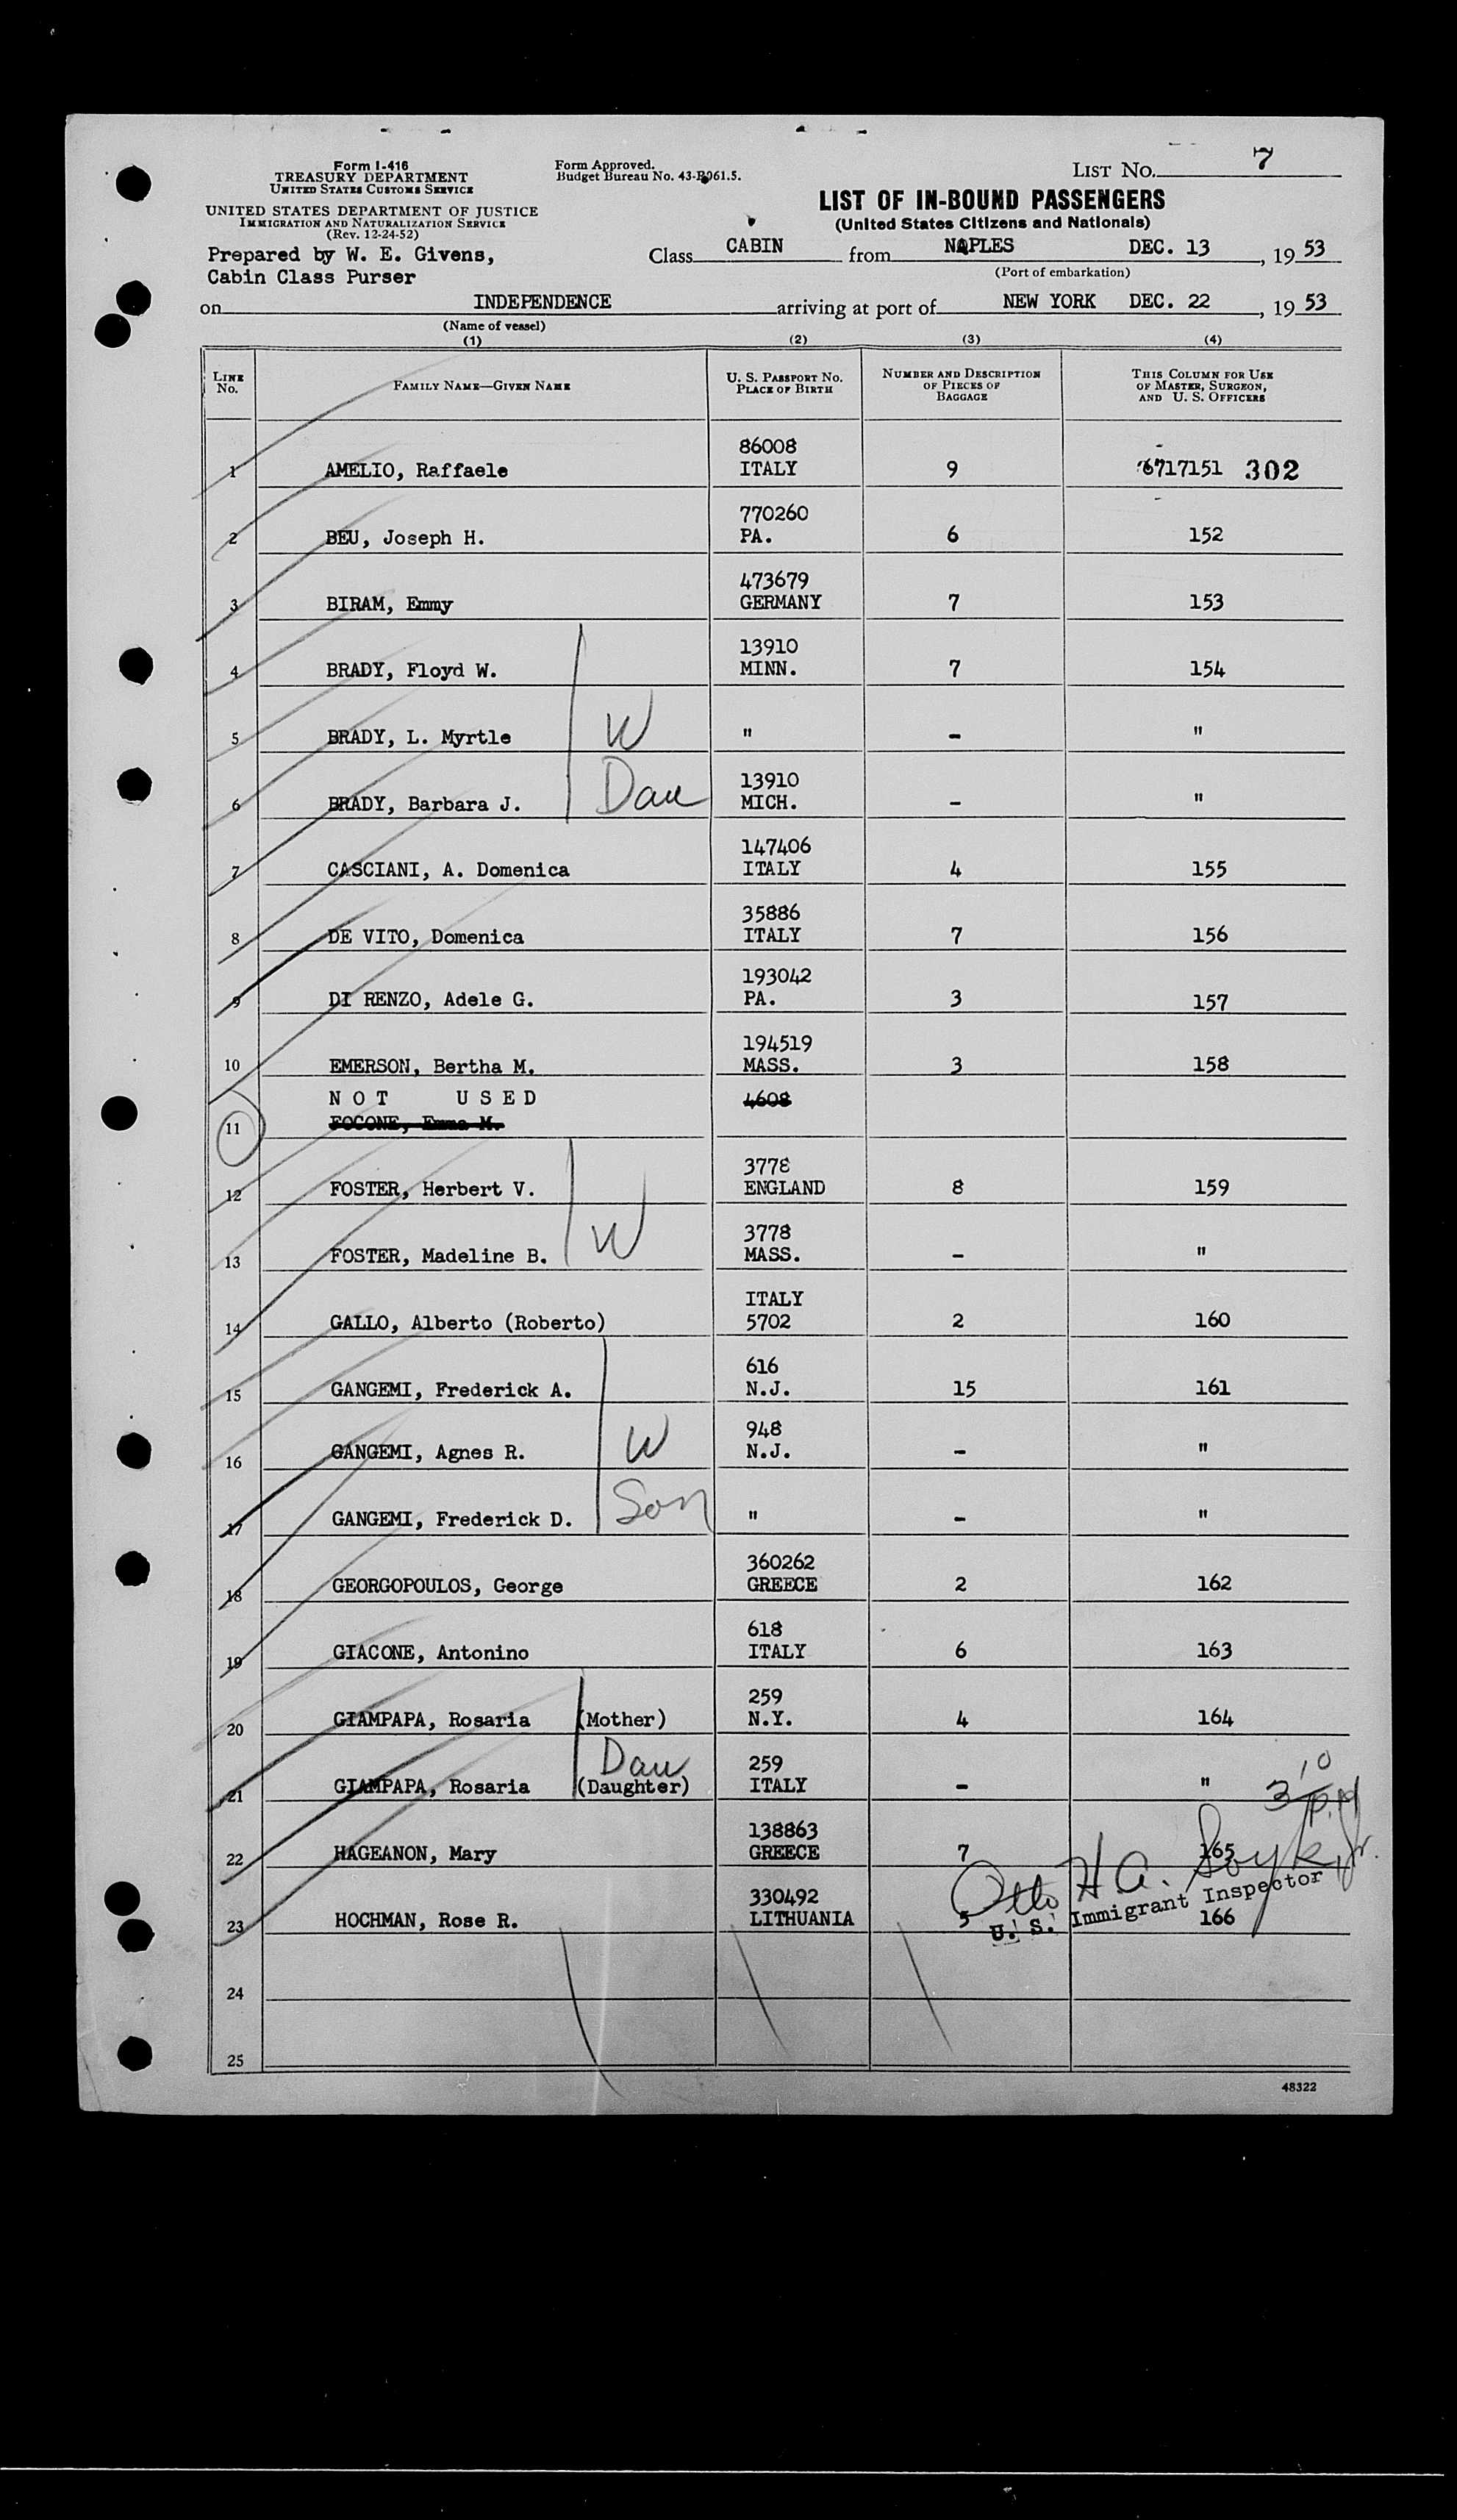 Form I-416
TREASURY DEPARTMENT
UNITED STATES CUSTOMS SERVICE
UNITED STATES DEPARTMENT OF JUSTICE
IMMIGRATION AND NATURALIZATION SERVICE
(Rev. 12-24-52)
Form Approved.
Budget Bureau No. 43-R061.5.
LIST NO. 7
LIST OF IN-BOUND PASSENGERS
(United States Citizens and Nationals)
Prepared by W. E. Givens,
Cabin Class Purser
Class CABIN from NAPLES DEC. 13, 19 53
(Port of embarkation)
on INDEPENDENCE arriving at port of NEW YORK DEC. 22, 19 53
(Name of vessel)
(1) (2) (3) (4)
LINE No. FAMILY NAME—GIVEN NAME U. S. PASSPORT NO. PLACE OF BIRTH NUMBER AND DESCRIPTION OF PIECES OF BAGGAGE THIS COLUMN FOR USE OF MASTER, SURGEON, AND U. S. OFFICERS
1 AMELIO, Raffaele 86008 ITALY 9 6717151 302
2 BEU, Joseph H. 770260 PA. 6 152
3 BIRAM, Emmy 473679 GERMANY 7 153
4 BRADY, Floyd W. 13910 MINN. 7 154
5 BRADY, L. Myrtle W " - "
6 BRADY, Barbara J. Dau 13910 MICH. - "
7 CASCIANI, A. Domenica 147406 ITALY 4 155
8 DE VITO, Domenica 35886 ITALY 7 156
9 DI RENZO, Adele G. 193042 PA. 3 157
10 EMERSON, Bertha M. 194519 MASS. 3 158
NOT USED
11 FOCONE, Emma M. 4608
12 FOSTER, Herbert V. 3778 ENGLAND 8 159
13 FOSTER, Madeline B. W 3778 MASS. - "
14 GALLO, Alberto (Roberto) ITALY 5702 2 160
15 GANGEMI, Frederick A. 616 N.J. 15 161
16 GANGEMI, Agnes R. W 948 N.J. - "
17 GANGEMI, Frederick D. Son " - "
18 GEORGOPOULOS, George 360262 GREECE 2 162
19 GIACONE, Antonino 618 ITALY 6 163
20 GIAMPAPA, Rosaria (Mother) 259 N.Y. 4 164
21 GIAMPAPA, Rosaria Dau (Daughter) 259 ITALY - "
3 10 P.M
22 HAGEANON, Mary 138863 GREECE 7 165
Otto H A.
U. S. Immigrant Inspector
23 HOCHMAN, Rose R. 330492 LITHUANIA 5 166
24
25
48322